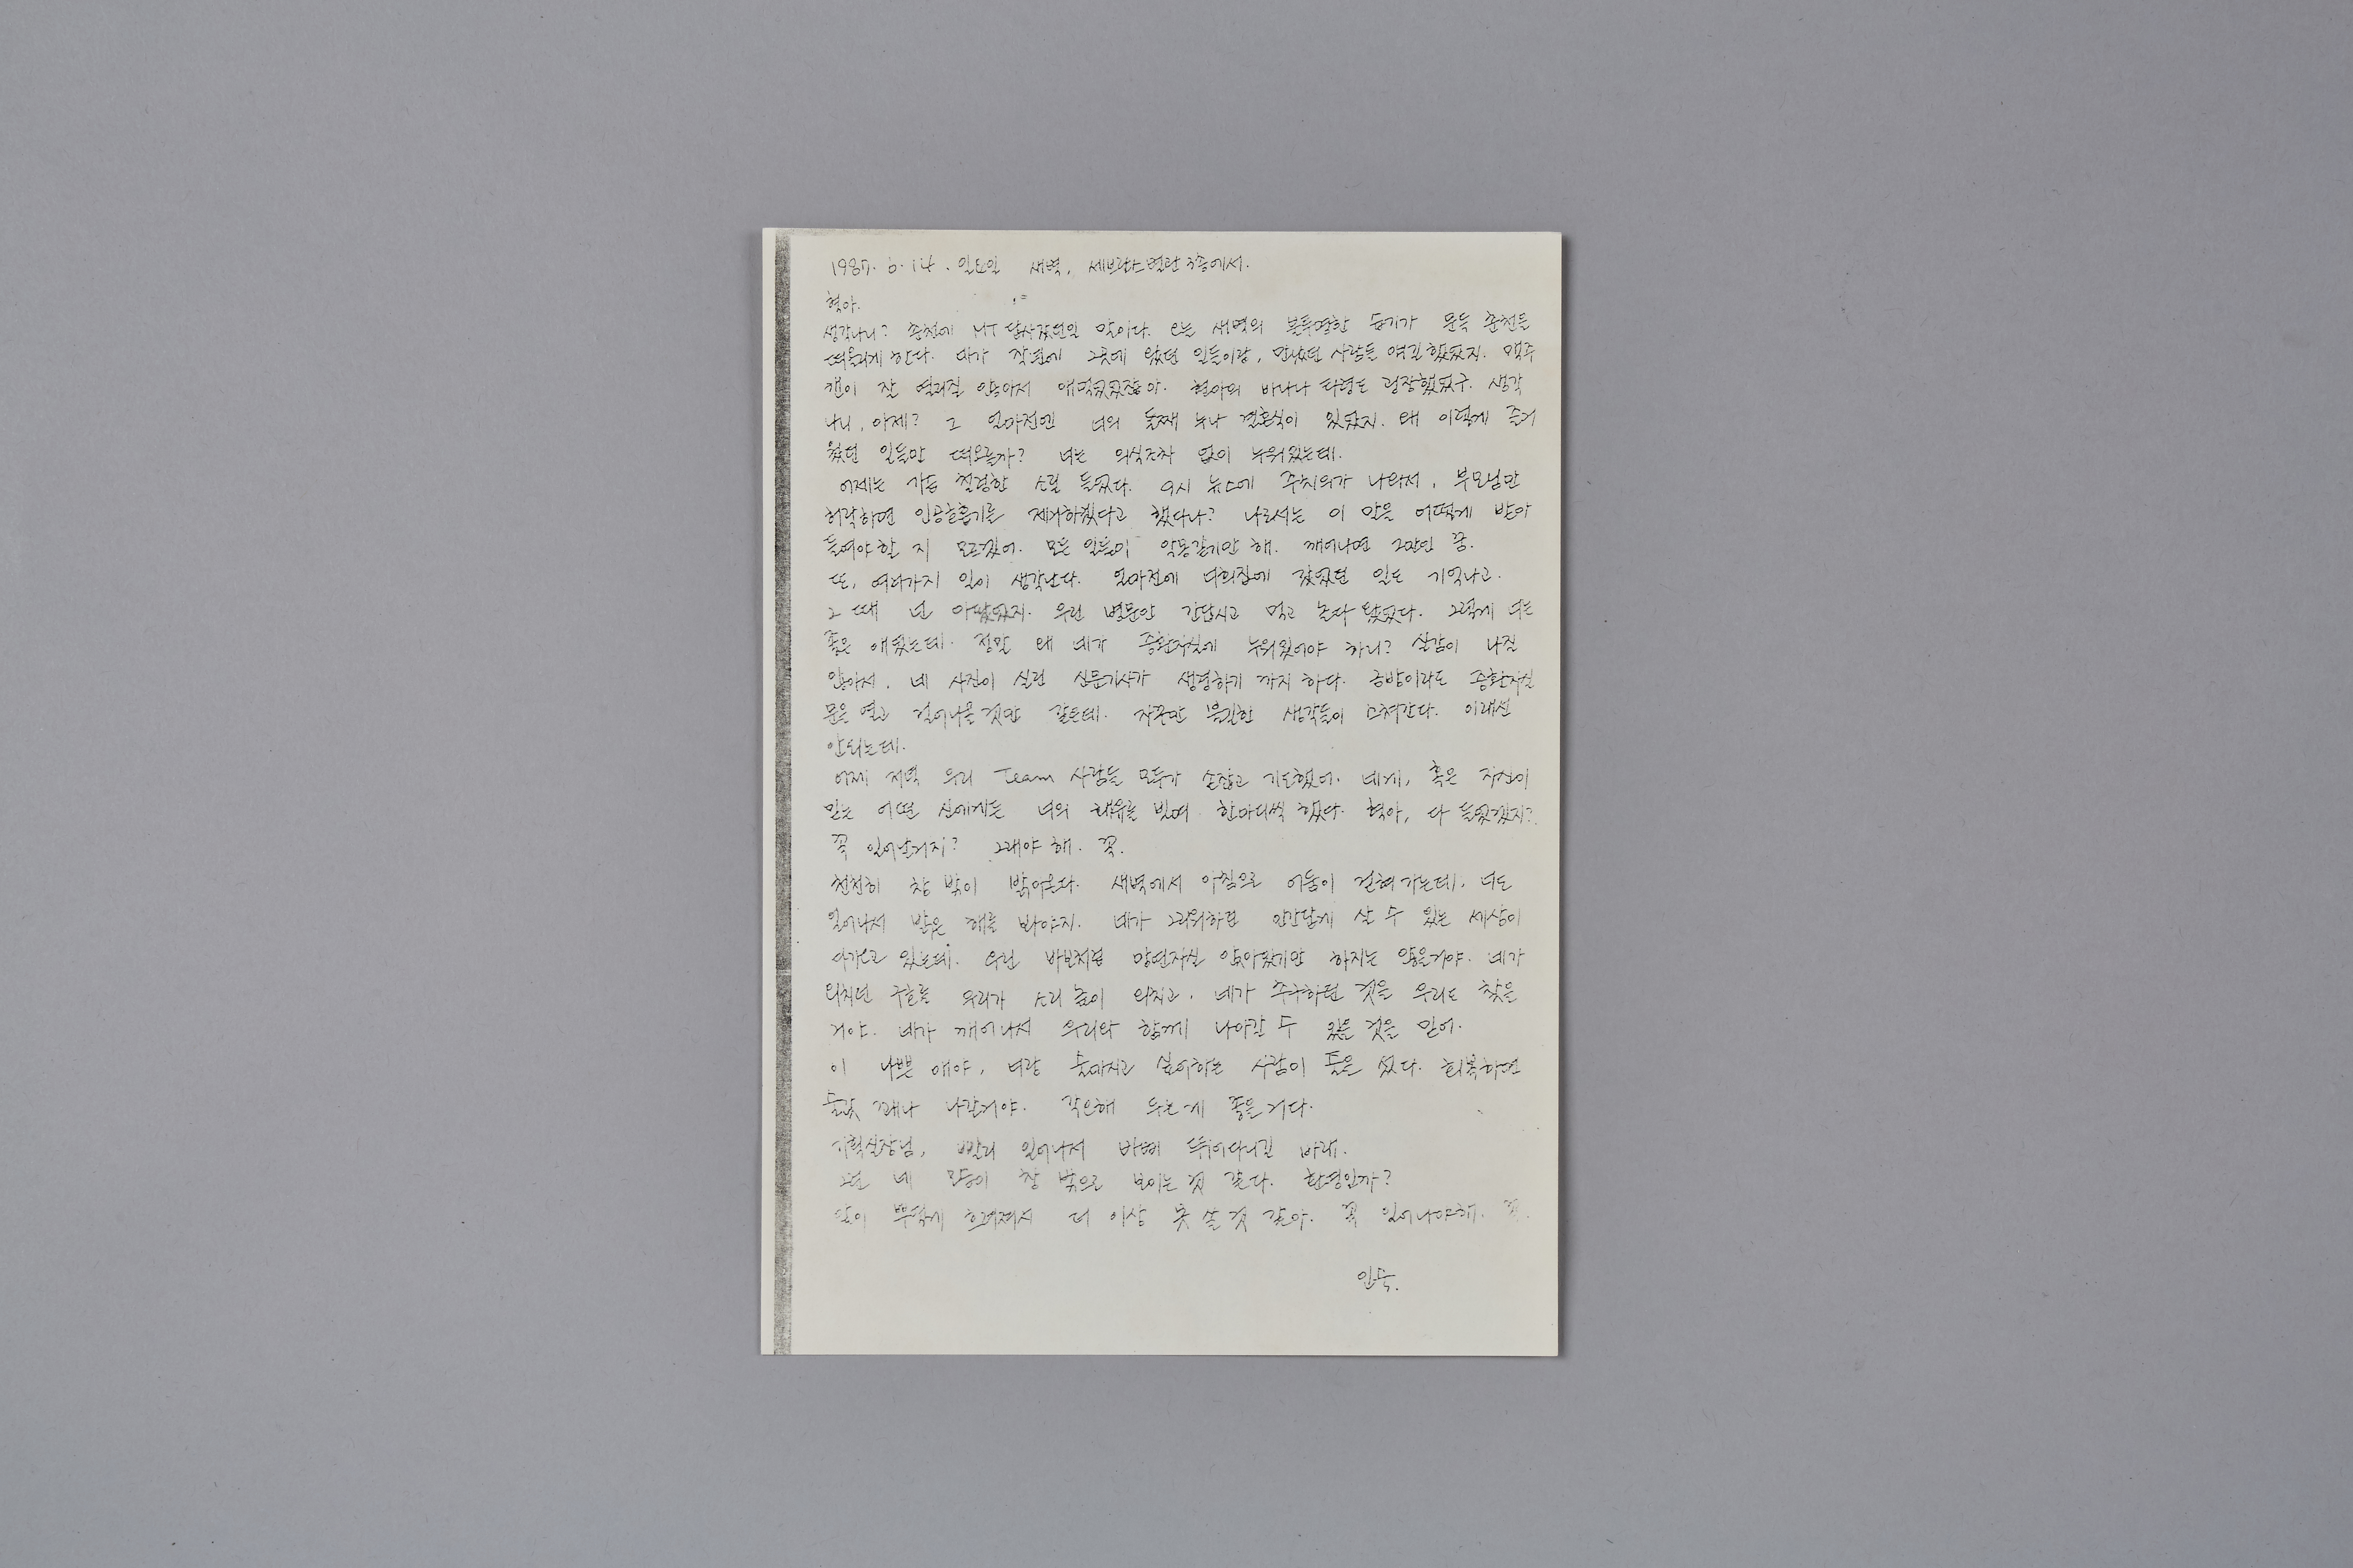 1987. 6. 14. 일요일 새벽, 세브란스 병원 3층에서.
혁아.
생각나니? 춘천에 MT 답사갔던일 말이다. 오는 새벽의 불투명한 습기가 문득 춘천을
떠올리게 한다. 내가 작년에 그곳에 왔던 일들이랑, 만났던 사람들 얘길 했었지. 맥주
캔이 잘 열려질 않아서 애먹었었잖아. 현아의 바나나 타령도 굉장했었구. 생각
나니, 아제? 그 얼마전엔 너의 둘째 누나 결혼식이 있었지. 왜 이렇게 즐거
웠던 일들만 떠오를까? 너는 의식조차 없이 누워있는데.
어제는 가슴 철렁한 소릴 들었다. 9시 뉴스에 주치의가 나와서, 부모님만
허락하면 인공호흡기를 제거하겠다고 했다나? 나로서는 이 말을 어떻게 받아
들여야 할 지 모르겠어. 모든 일들이 악몽같기만 해. 깨어나면 그만인 꿈.
또, 여러가지 일이 생각난다. 얼마전에 너희집에 갔었던 일도 기억나고.
그 때 넌 아팠었지. 우린 병문안 간답시고 먹고 놀다 왔었다. 그렇게 너는
좋은 애였는데. 정말 왜 네가 중환자실에 누워있어야 하니? 실감이 나질
않아서, 네 사진이 실린 신문기사가 생경하기 까지 하다. 금방이라도 중환자실
문을 열고 걸어나올 것만 같은데. 자꾸만 불길한 생각들이 스쳐간다. 이래선
안되는데.
어제 저녁 우리 Team 사람들 모두가 손잡고 기도했어. 네게, 혹은 자신이
믿는 어떤 신에게든 너의 쾌유를 빌며 한마디씩 했다. 혁아, 다 들었겠지?
꼭 일어날거지? 그래야 해. 꼭.
천천히 창 밖이 밝아온다. 새벽에서 아침으로 어둠이 걷혀 가는데. 너도
일어나서 밝은 해를 봐야지. 네가 그리워하던 인간답게 살 수 있는 세상이
다가오고 있는데. 우린 바보처럼 망연자실 앉아있기만 하지는 않을거야. 네가
외치던 구호를 우리가 소리 높이 외치고, 네가 추구하던 것을 우리도 찾을
거야. 네가 깨어나서 우리와 함께 나아갈 수 있을 것을 믿어.
이 나쁜 애야, 너랑 술마시고 싶어하는 사람이 줄을 섰다. 회복하면
술값 깨나 나갈거야. 각오해 두는게 좋을거다.
기획실장님, 빨리 일어나서 바삐 뛰어다니길 바래.
그런 네 모습이 창 밖으로 보이는 것 같다. 환영인가?
눈이 뿌옇게 흐려져서 더 이상 못 쓸 것 같아. 꼭 일어나야해. 꼭.
인숙.